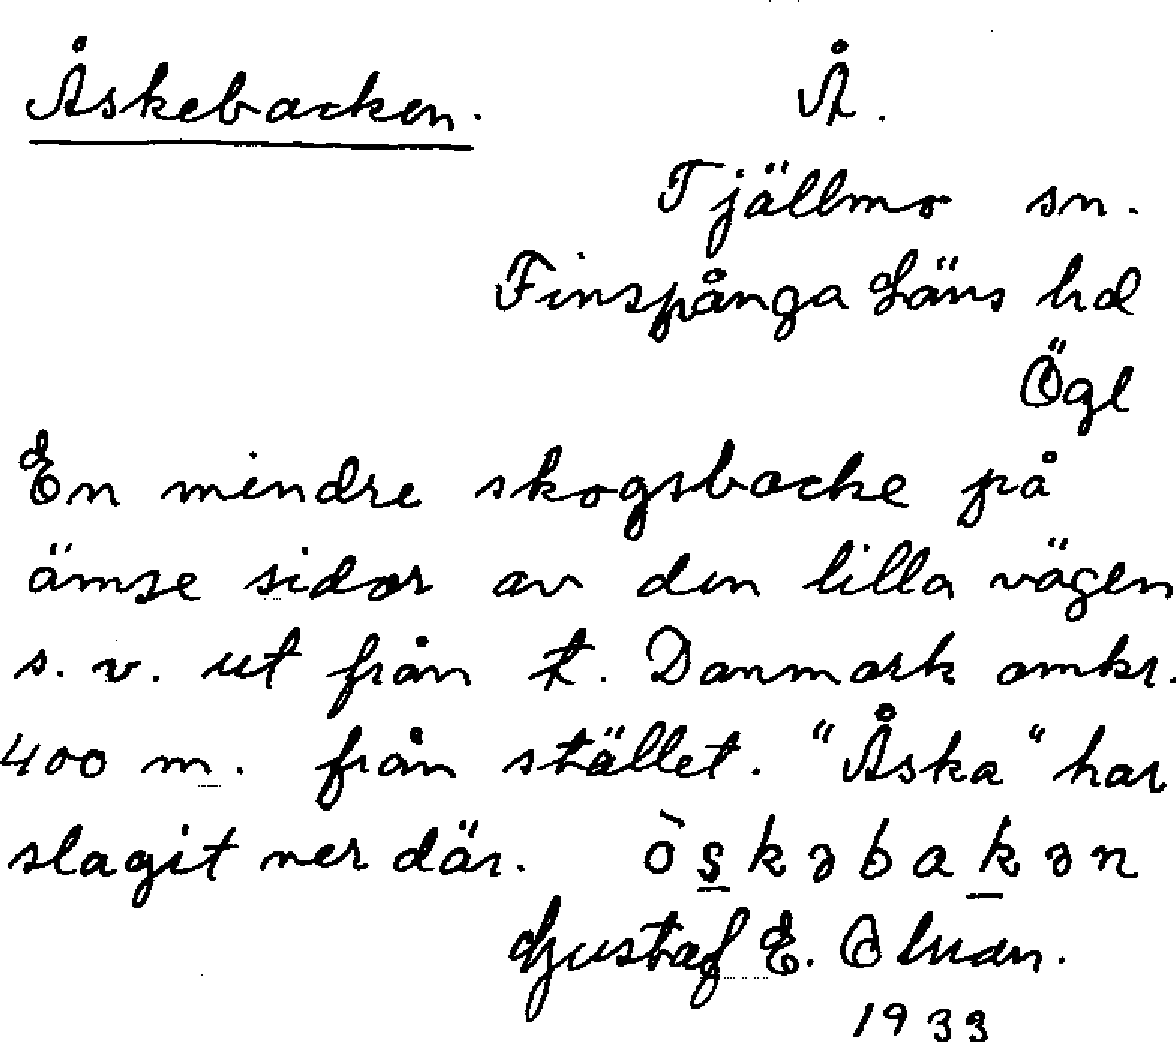 Åskebacken. Å.
Tjällmo sn.
Finspånga läns hd
Ögl
En mindre skogsbacke på
ömse sidor av den lilla vägen
s. v. ut från t. Danmark omkr.
400 m. från stället. "Åska" har
slagit ner där. òskəbakən
Gustaf E.
1933